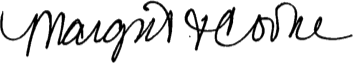 Margrit + Cooke